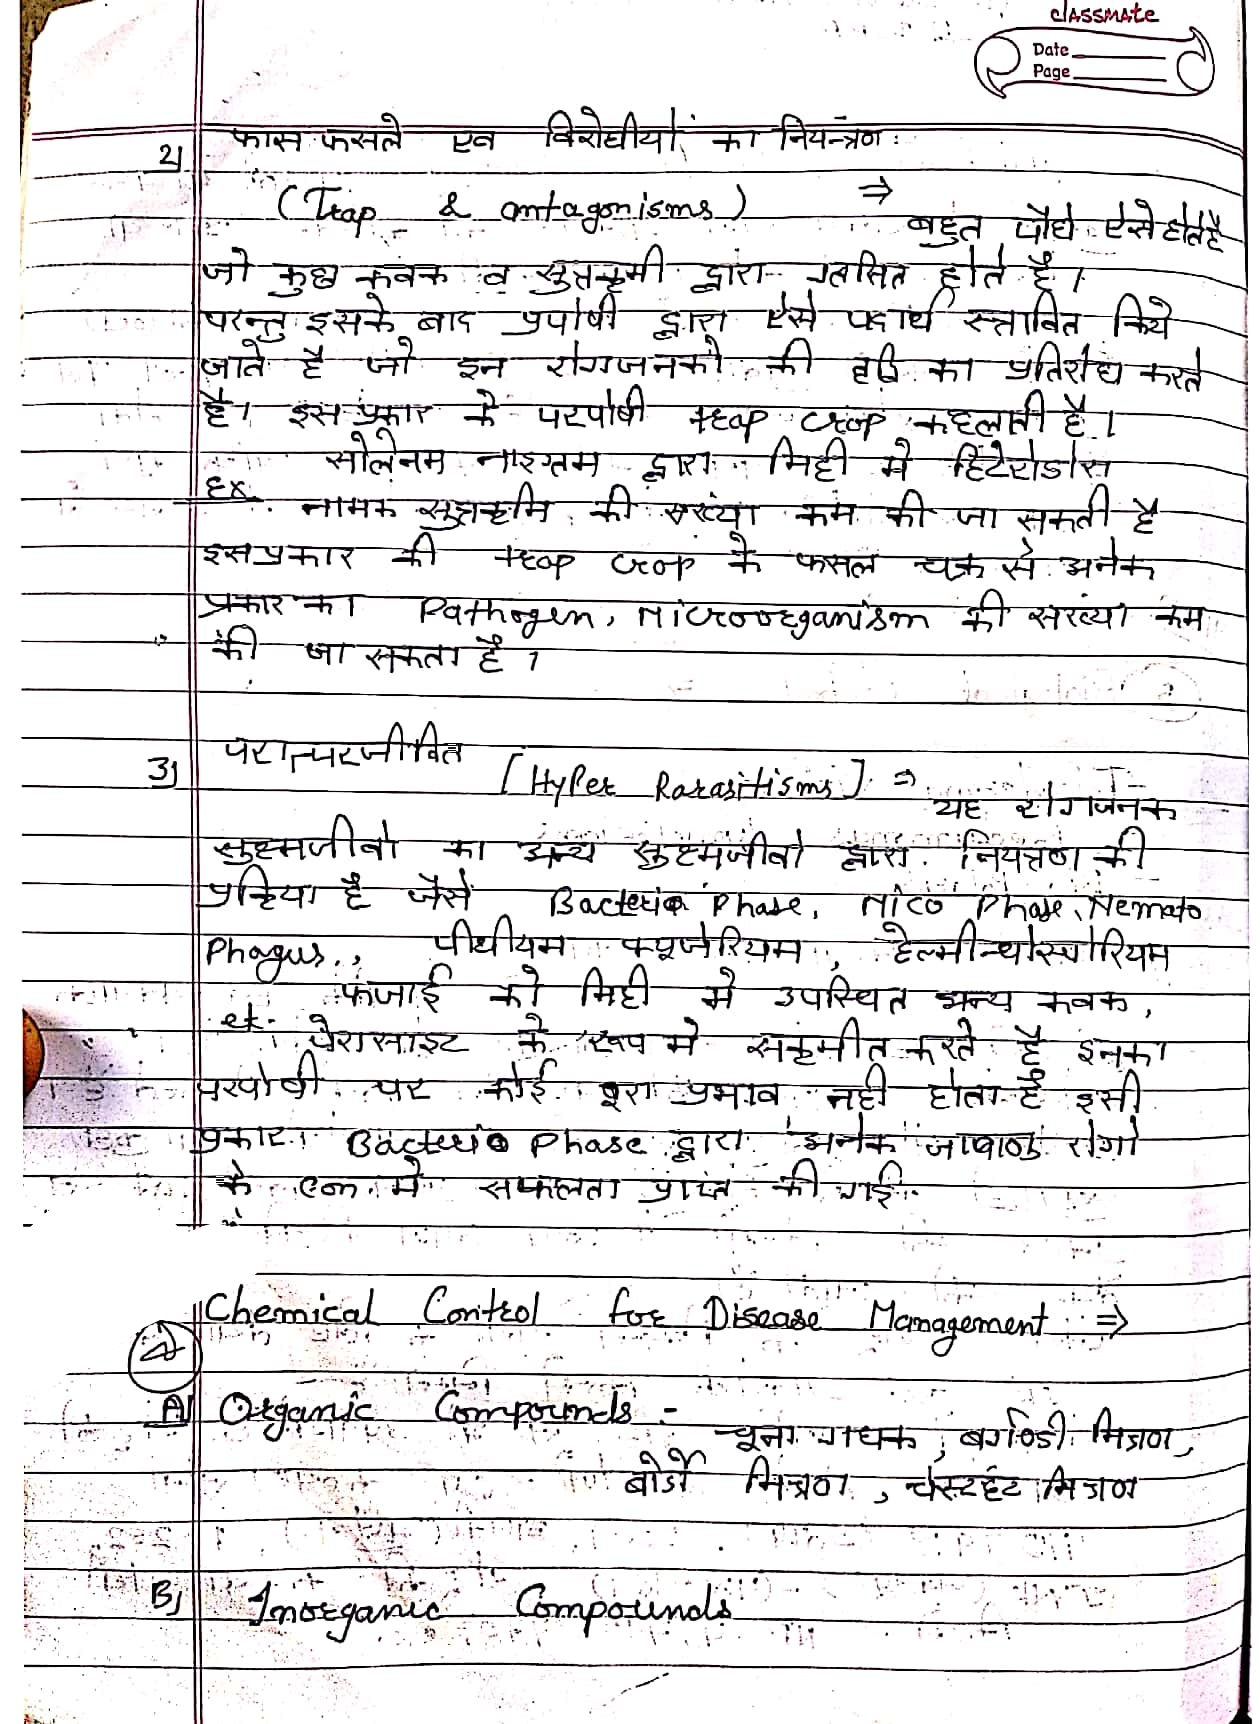 classmate
Date
Page
2) फास फसले एव विरोधीयों का नियन्त्रण :
(Trap & antagonisms) ⇒ बहुत पौधे ऐसे होते है
जो कुछ कवक व सुत्रकृमी द्वारा ग्रसित होते है।
परन्तु इसके बाद प्रपोषी द्वारा ऐसे पदार्थ स्त्रावित किये
जाते है जो इन रोगजनको की वृद्वि का प्रतिरोध करते
है। इस प्रकार के परपोषी trap crop कहलाती है।
Ex. सोलेनम नाइग्रम द्वारा मिट्टी मे हिटेरोडोरा
नामक सुत्रकृमि की संख्या कम की जा सकती है
इस प्रकार की trap crop के फसल चक्र से अनेक
प्रकार का Pathogen, Microorganism की संख्या कम
की जा सकता है।
3) परात्परजीविता [Hyper Parasitisms] ⇒ यह रोगजनक
सुक्ष्मजीवो का अन्य सुक्ष्मजीवो द्वारा नियंत्रण की
प्रक्रिया है जैसे Bacteria Phase, Mico Phase, Nemato
Phagus., पीथीयम फ्यूजेरियम, हेल्मीन्थोस्पोरियम
et. फंजाई को मिट्टी मे उपस्थित अन्य कवक,
पेरासाइट के रूप मे सक्रमीत करते है इनका
परपोषी पर कोई बुरा प्रभाव नही होता है इसी
प्रकार Bacterio Phase द्वारा अनेक जीवाणु रोगो
के con. मे सफलता प्राप्त की गई.
Chemical Control for Disease Management ⇒
A) Organic Compounds - चूना गंधक, बर्गण्डी मिश्रण,
बोर्डो मिश्रण, चेस्टहंट मिश्रण
B) Inorganic Compounds